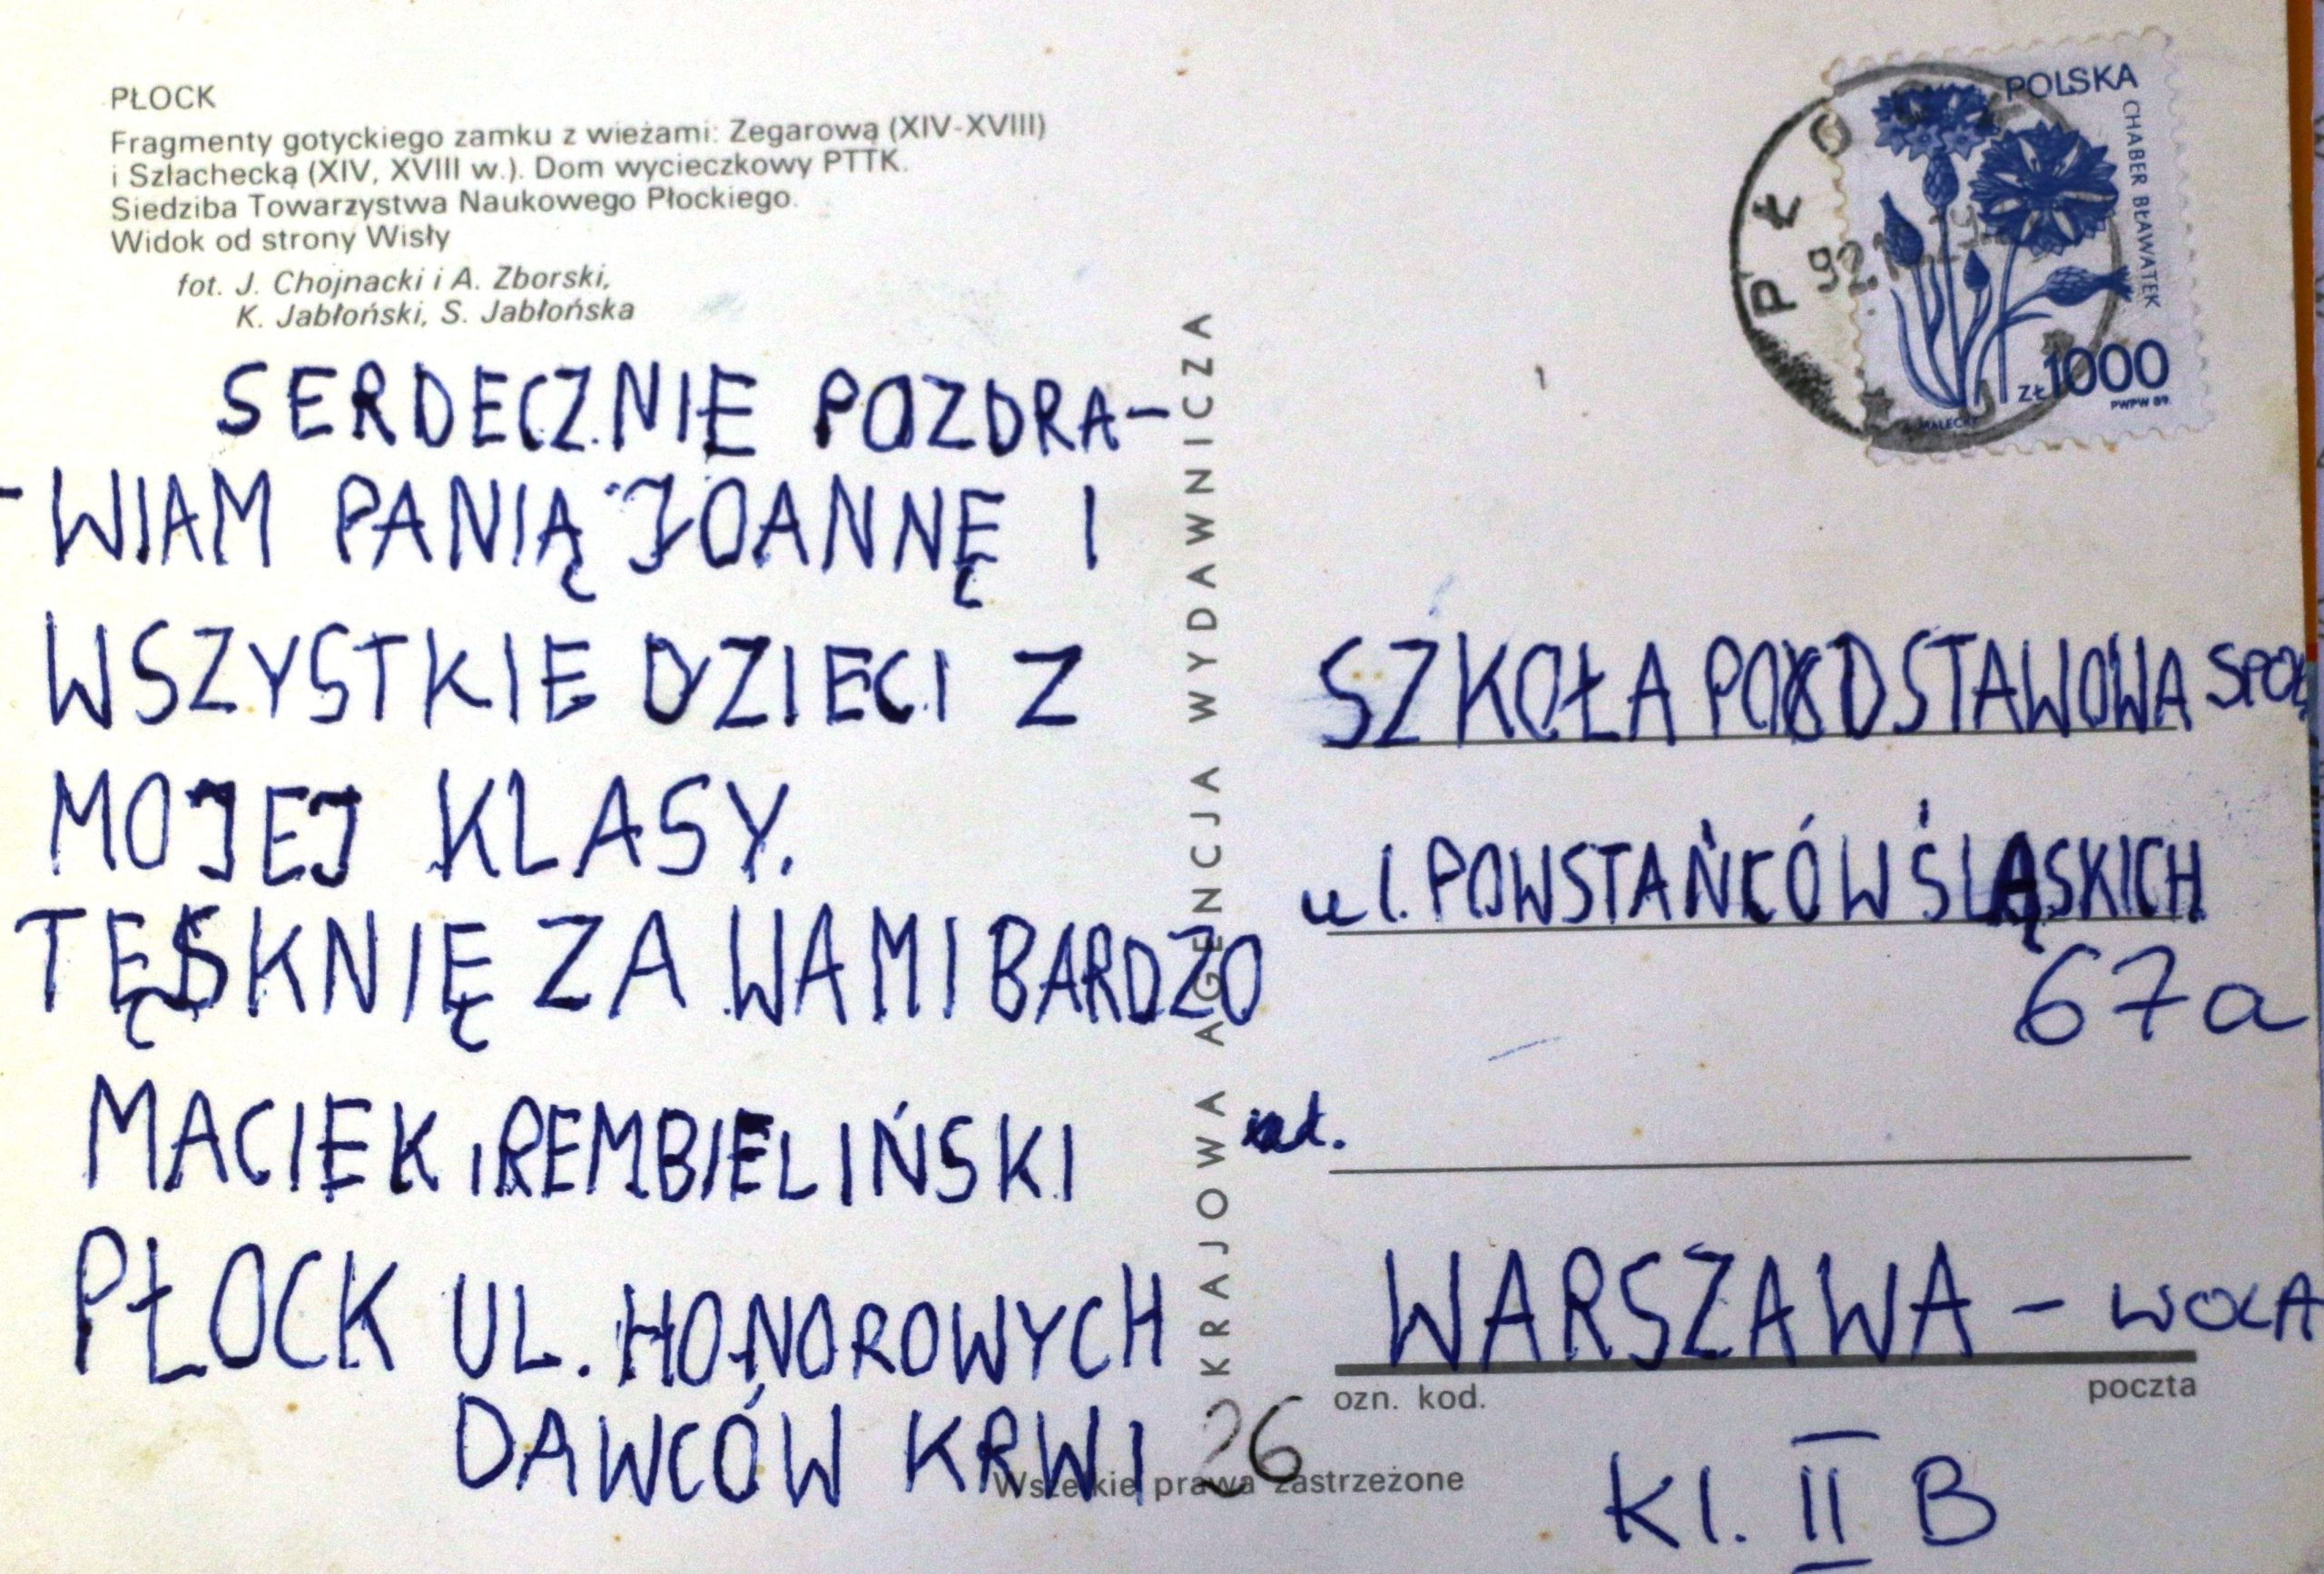 PŁOCK
Fragmenty gotyckiego zamku z wieżami: Zegarową (XIV-XVIII)
i Szlachecką (XIV, XVIII w.). Dom wycieczkowy PTTK.
Siedziba Towarzystwa Naukowego Płockiego.
Widok od strony Wisły
fot. J. Chojnacki i A. Zborski,
K. Jabłoński, S. Jabłońska
SERDECZNIE POZDRA-
-WIAM PANIĄ JOANNĘ I
WSZYSTKIE DZIECI Z
MOJEJ KLASY.
TĘSKNIĘ ZA WAMI BARDZO
MACIEK REMBIELIŃSKI
PŁOCK UL. HONOROWYCH
DAWCÓW KRWI 26
KRAJOWA AGENCJA WYDAWNICZA
Wszelkie prawa zastrzeżone
POLSKA
CHABER BŁAWATEK
ZŁ 1000
PWPW 89
MALECKI
PŁO
92
SZKOŁA PODSTAWOWA SPOŁ
ul. POWSTAŃCÓW ŚLĄSKICH
67a
WARSZAWA - WOLA
ozn. kod. poczta
Kl. II B